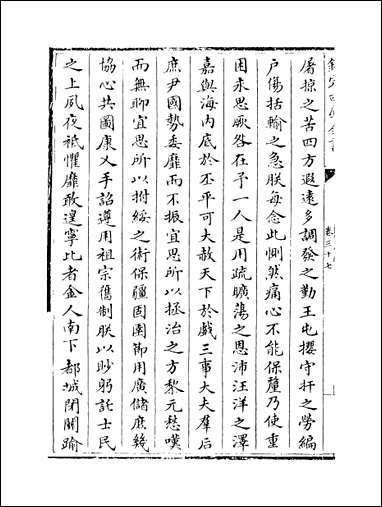 欽定四庫全書
卷三十七
屠掠之苦四方遐遠多調發之勤王屯擾守扞之勞編
戶傷括輸之急朕每念此惻然痛心不能保釐乃使重
困永思厥咎在予一人是用疏曠蕩之恩沛汪洋之澤
嘉與海内底於丕平可大赦天下於戲三事大夫羣后
庶尹國勢委靡而不振宜思所以拯治之方黎元愁嘆
而無聊宜思所以拊綏之術保疆固圉節用廣儲庶幾
協心共圖康乂手詔遵用祖宗舊制朕以眇躬託士民
之上夙夜祗懼靡敢遑寧比者金人南下都城閉關踰